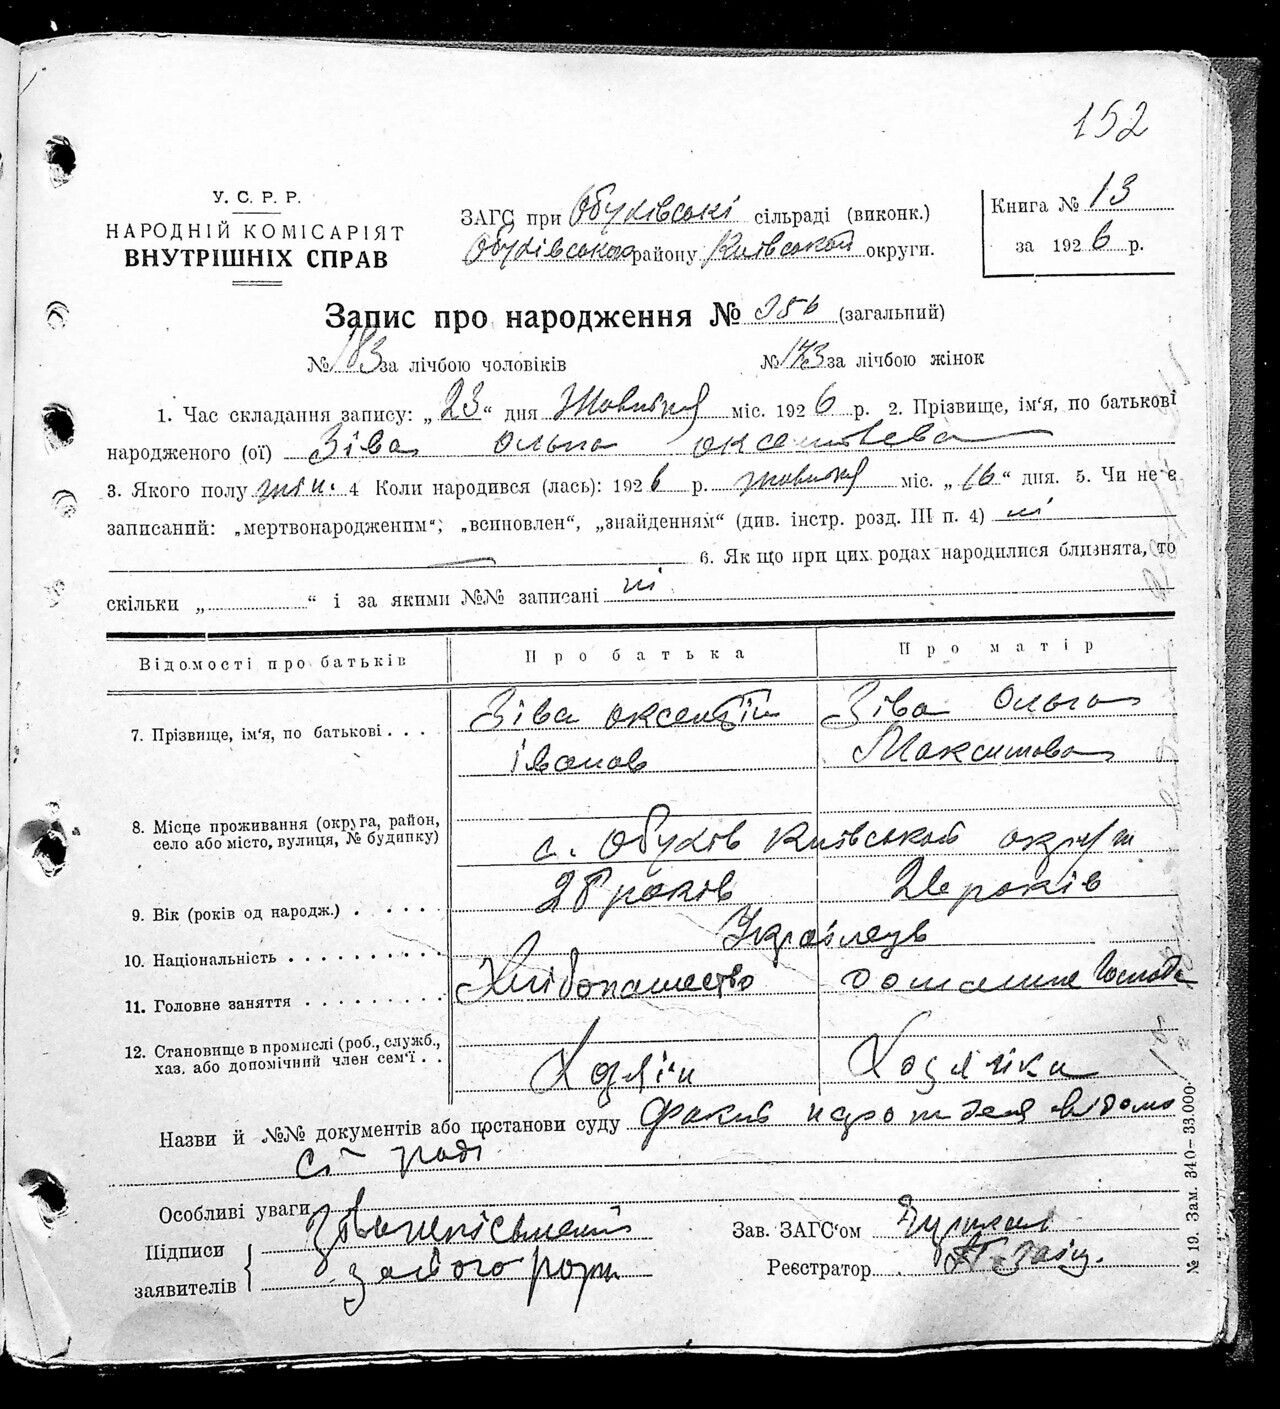 152
У. С. Р. Р.
НАРОДНІЙ КОМІСАРІЯТ
ВНУТРІШНІХ СПРАВ
ЗАГС при Обухівські сільраді (виконк.)
Обухівського району Київської округи.
Книга № 13
за 1926 р.
Запис про народження № 356 (загальний)
№ 183 за лічбою чоловіків № 173 за лічбою жінок
1. Час складання запису: „23“ дня Жовтня міс. 1926 р. 2. Прізвище, ім'я, по батькові
народженого (ої) Зіва Ольга
3. Якого полу жін. 4 Коли народився (лась): 1926 р. жовтня міс. „16“ дня. 5. Чи не є
записаний: „мертвонародженим“; „всиновлен“, „знайденням“ (див. інстр. розд. III п. 4) ні
6. Як що при цих родах народилися близнята, то
скільки „ “ і за якими №№ записані ні
Відомості про батьків Про батька Про матір
7. Прізвище, ім'я, по батькові . . . Зіва Оксентій Зіва Ольга
Іванов Максимова
8. Місце проживання (округа, район,
село або місто, вулиця, № будинку) с. Обухів Київської округи
9. Вік (років од народж.) . . . . 28 років 26 років
10. Національність . . . . . . . . . . Українців
11. Головне заняття . . . . . . . . Хлібопашество домашнє Господа
12. Становище в промислі (роб., служб.,
хаз. або допомічний член сем'ї . . Хозяїн Хозяйка
Назви й №№ документів або постанови суду відомо
с/раді
Особливі уваги
Підписи
заявителів
Зав. ЗАГС'ом
Реєстратор
№ 19. Зам. 340—33.000